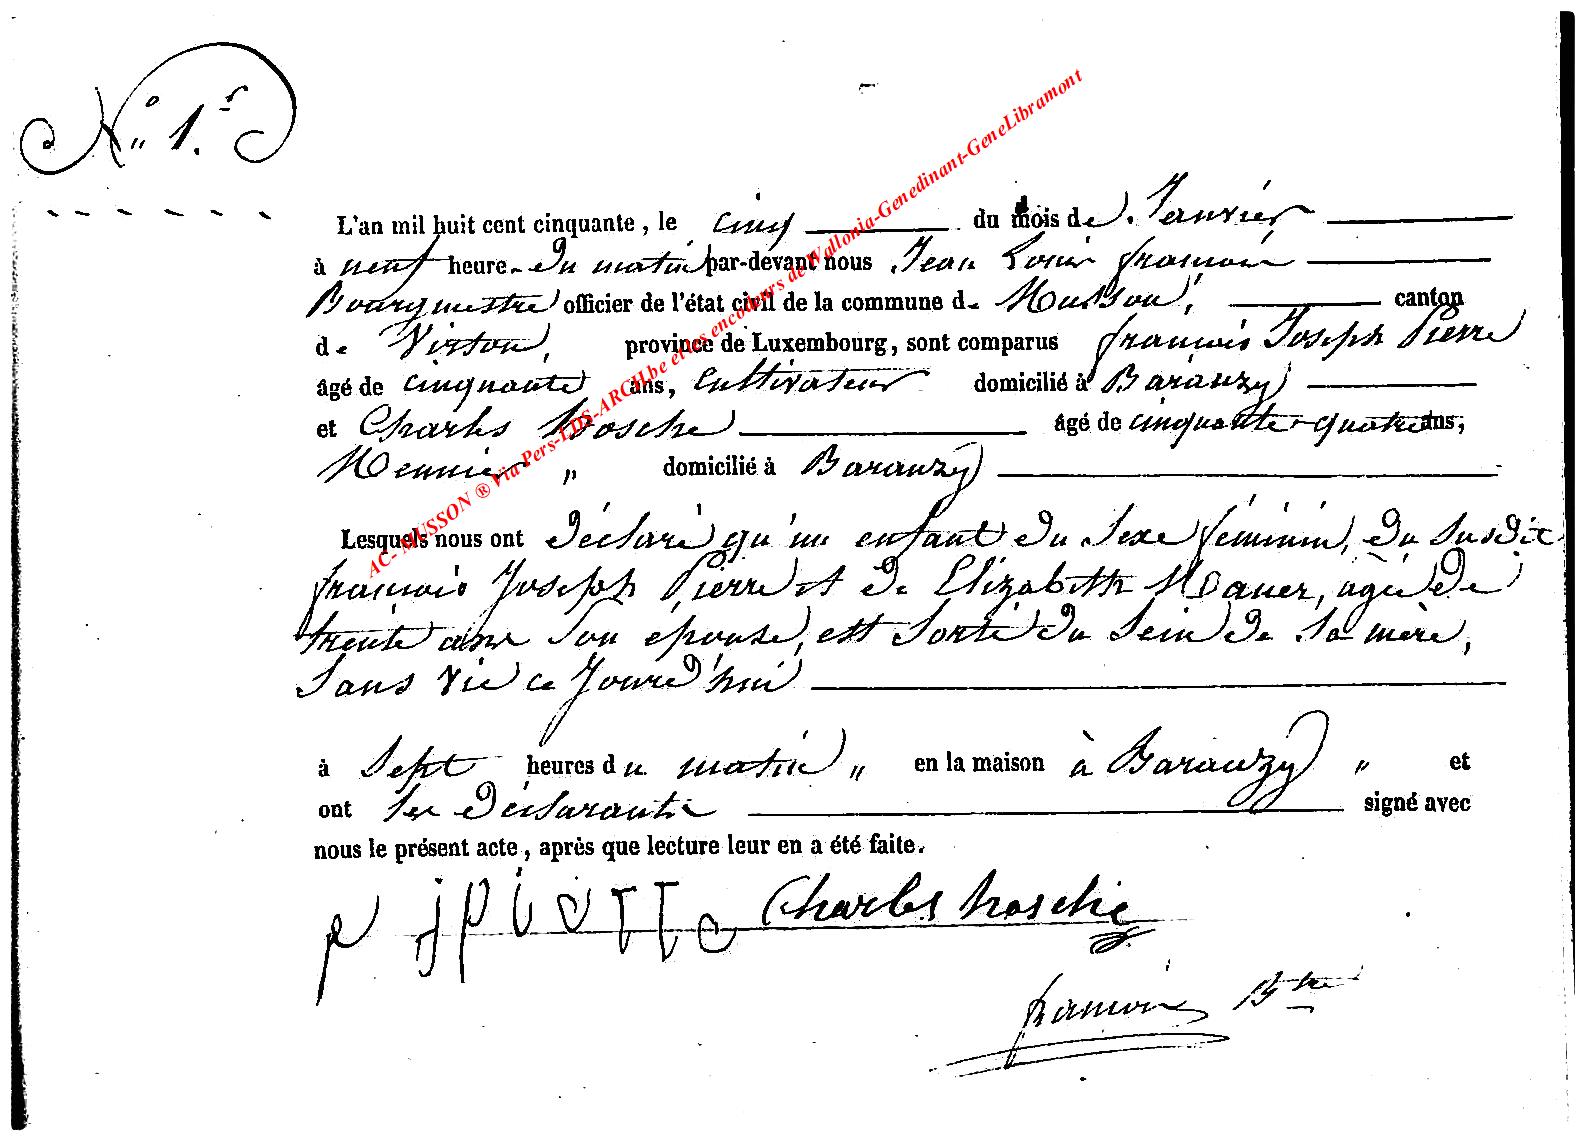 N° 1.r
L'an mil huit cent cinquante, le cinq du mois de Janvier
à neuf heure du matin par-devant nous Jean Louis françois
Bourgmestre officier de l'état civil de la commune de Musson, canton
de Virton, province de Luxembourg, sont comparus françois Joseph Pierre
âgé de cinquante ans, Cultivateur domicilié à Baranzy
et Charles Hosche âgé de cinquante-quatre ans,
Meunier " domicilié à Baranzy
Lesquels nous ont déclaré qu'un enfant du Sexe féminin, du susdit
françois Joseph Pierre et de Elizabeth Maner, agée de
trente ans Son épouse, est Sortie du Sein de Sa mère,
Sans Vie ce Jourd'hui
à Sept heures du matin " en la maison à Baranzy " et
ont les déclarants signé avec
nous le présent acte, après que lecture leur en a été faite.
Charles hosche
françois Btre
AC- MUSSON ® Via Pers-LDS-ARCH.be et les encodeurs de Wallonia-Genedinant-GeneLibramont